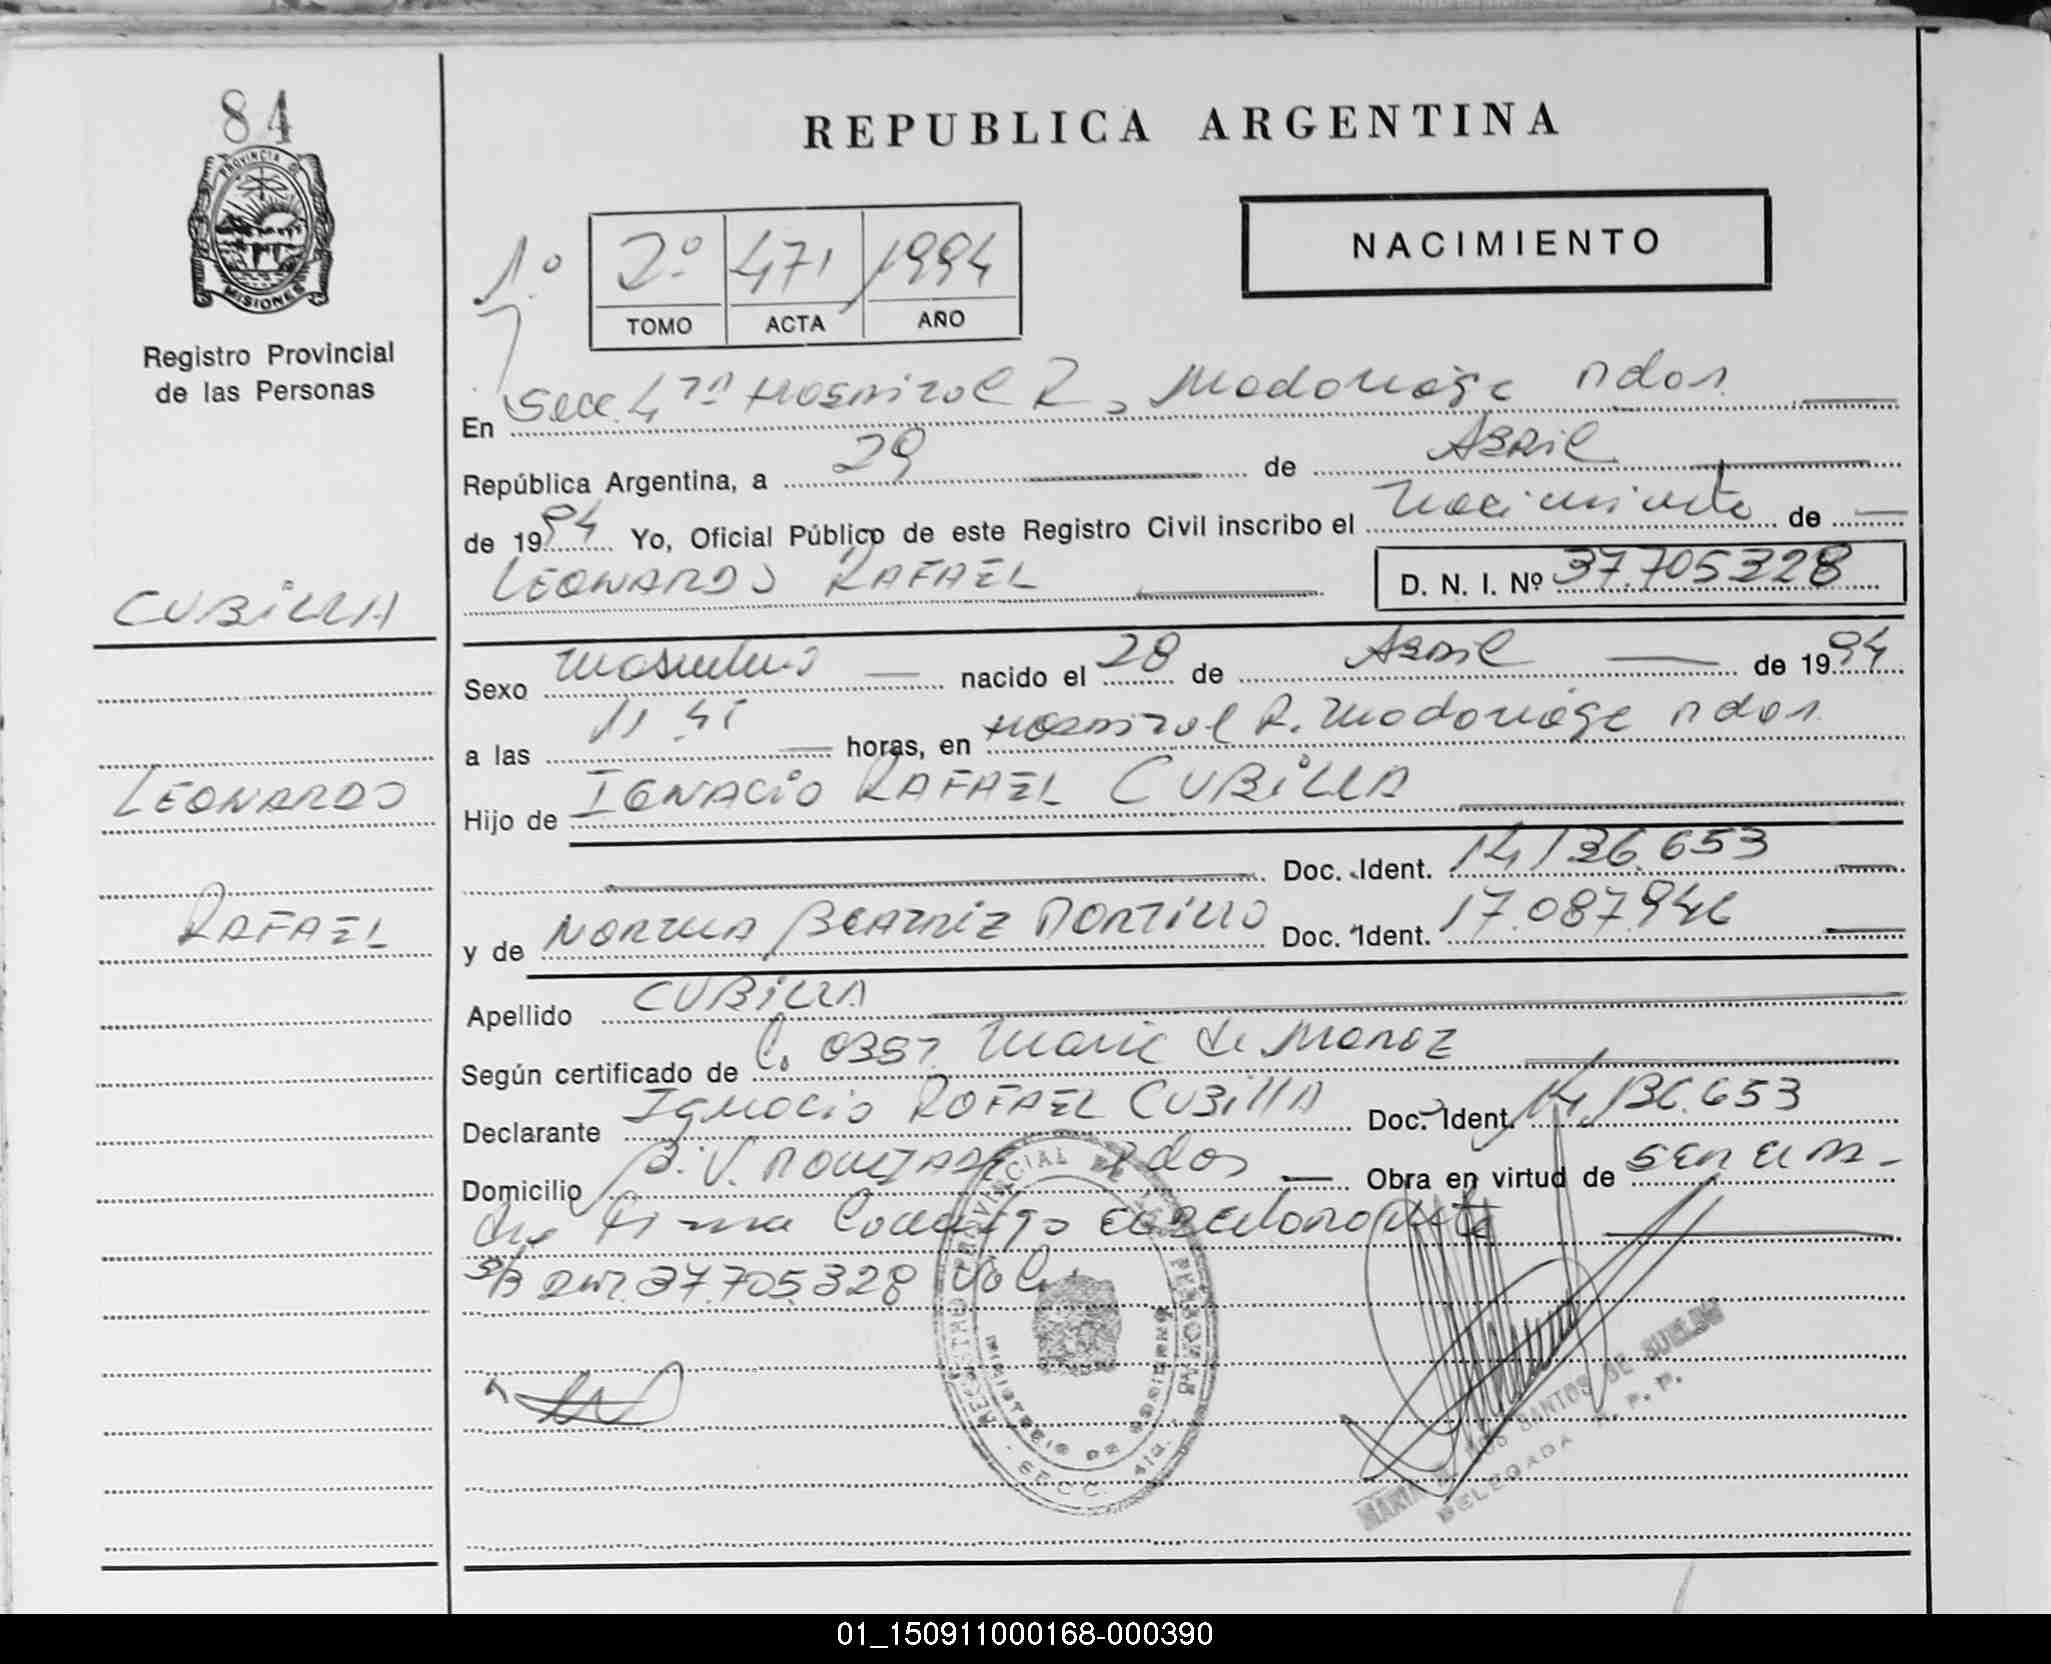 84
PROVINCIA DE
MISIONES
Registro Provincial
de las Personas
REPUBLICA ARGENTINA
NACIMIENTO
1º 2º 471 1994
TOMO ACTA AÑO
En Secc. 4ta Hospital R. Madariaga Pdas.
República Argentina, a 29 de Abril
de 1994 Yo, Oficial Público de este Registro Civil inscribo el nacimiento de
LEONARDO RAFAEL D. N. I. Nº 37.705328
CUBILLA
Sexo masculino nacido el 28 de Abril de 1994
a las 11 45 horas, en Hospital R. Madariaga Pdas.
LEONARDO
Hijo de IGNACIO RAFAEL CUBILLA
Doc. Ident. 14,136.653
RAFAEL
y de NORMA BEATRIZ PORTILLO Doc. Ident. 17.087.946
Apellido CUBILLA
Según certificado de Obst. Maria de
Declarante Ignacio RAFAEL CUBILLA Doc. Ident. 14,136.653
Domicilio B. V. Pdas Obra en virtud de ser el p.
firma conmigo
S/B DNI. 37.705.328 Vale
REGISTRO PROVINCIAL DE LAS PERSONAS
MINISTERIO DE GOBIERNO
SECC. 4ta.
SANTOS DE
DELEGADA R. P. P.
01_150911000168-000390